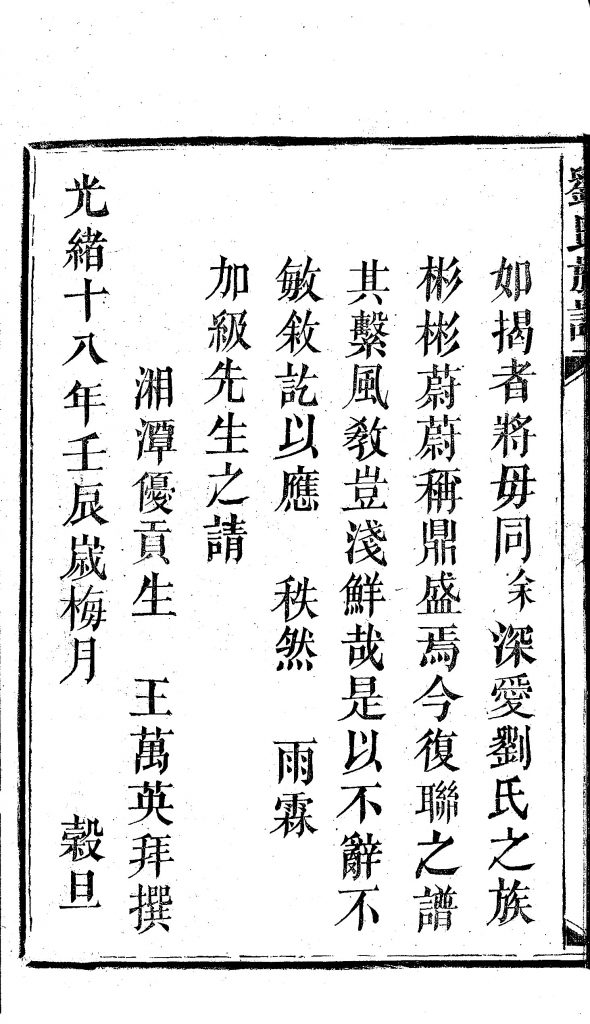 劉氏族譜
如揭者將毋同余深愛劉氏之族
彬彬蔚蔚稱鼎盛焉今復聯之譜
其繫風敎豈淺鮮哉是以不辭不
敏敘訖以應 秩然 雨霖
加級先生之請
湘潭優貢生 王萬英拜撰
光緒十八年壬辰歲梅月 穀旦